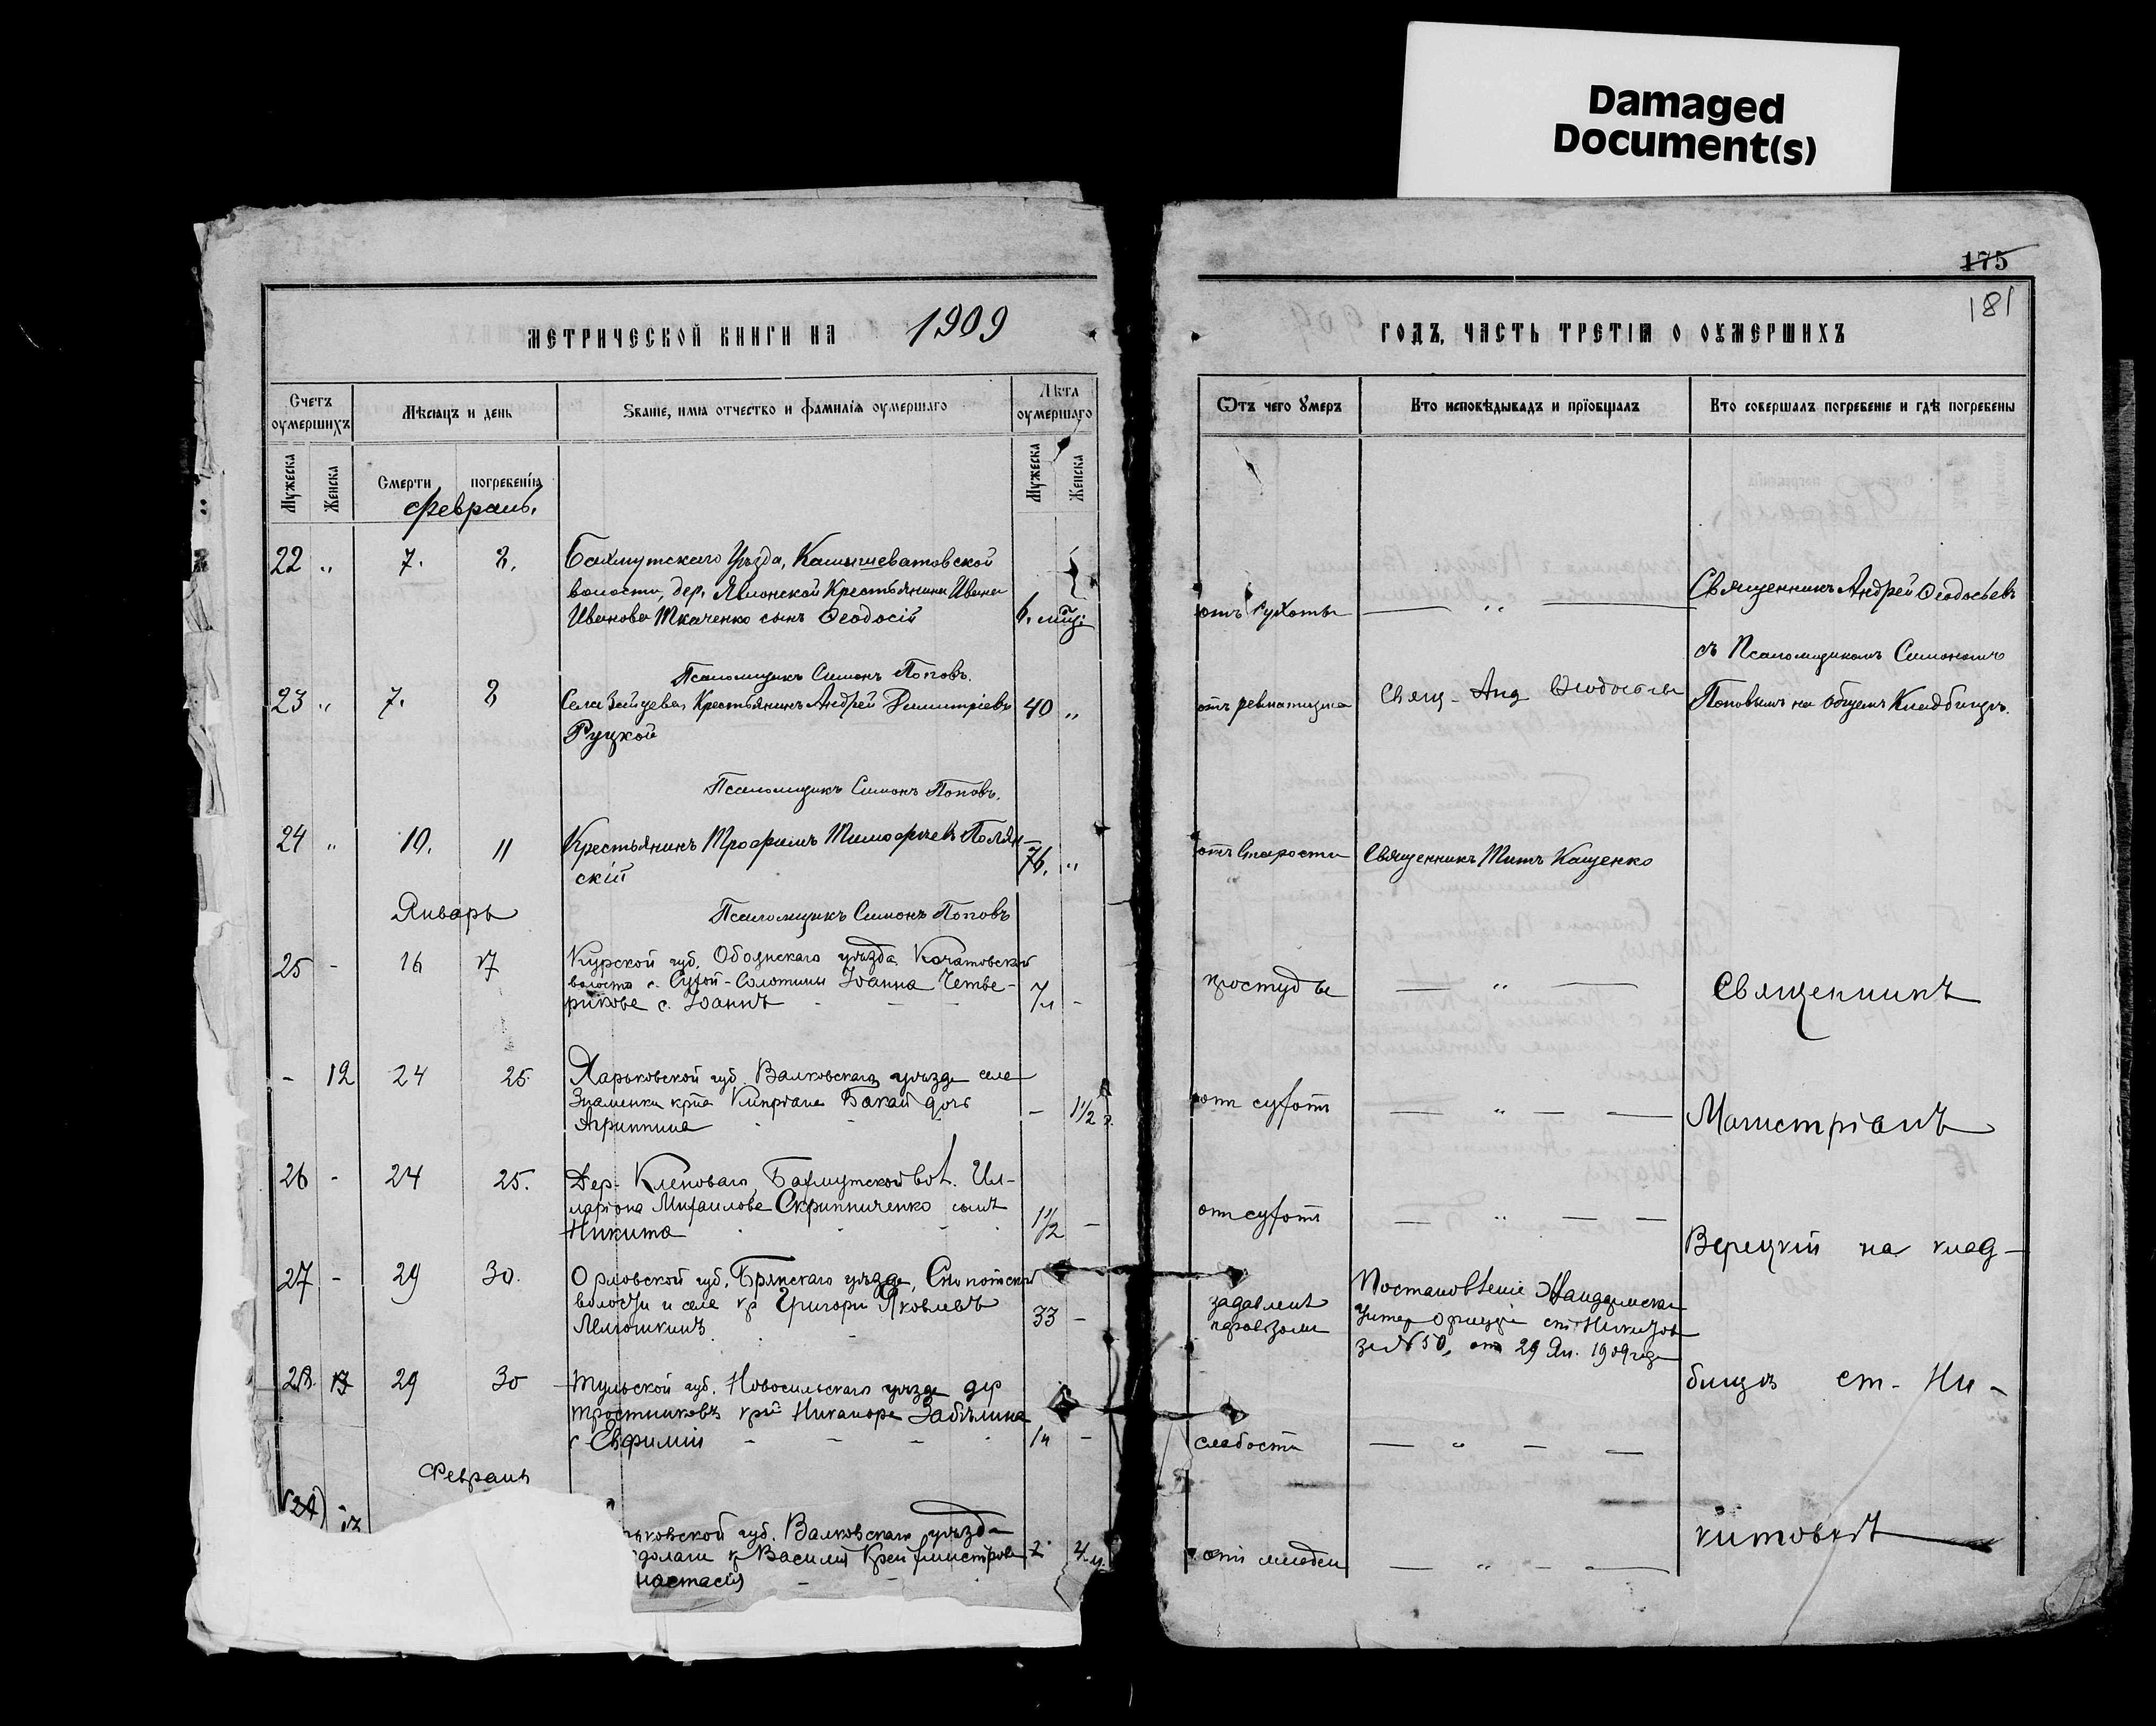 Damaged
Document(s)
175
181
МЕТРИЧЕСКОЙ КНИГИ НА 1909
ГОДЪ, ЧАСТЬ ТРЕТІЯ О ОУМЕРШИХЪ
Счетъ оумершихъ
Мѣсяцъ и день
Званіе, имя отчество и фамилія оумершаго
Лѣта оумершаго
Отъ чего умеръ
Кто исповѣдывалъ и пріобщалъ
Кто совершалъ погребеніе и гдѣ погребены
Мужеска
Женска
Смерти
погребенія
Мужеска
Женска
Февраль.
22 „ 7. 8. Бахмутскаго Уѣзда, Камышеватовской
волости, дер. Крестьянина Ивана
Иванова Ткаченко сынъ Ѳеодосій 6. мѣс. отъ сухоты — „ — Священникъ Андрей Ѳеодосьевъ
Псаломщикъ Симонъ Поповъ.
съ Псаломщикомъ Симономъ
23 „ 7. 8 Села Зайцева, Крестьянинъ Андрей Димитріевъ 40 „ отъ ревматизма Свящ. Анд Ѳеодосьевъ Поповымъ на общемъ Кладбищѣ.
Руцкой
Псаломщикъ Симонъ Поповъ.
24 „ 10. 11 Крестьянинъ Трофимъ Тимофѣевъ Полян-
скій 76. „ отъ Старости Священникъ Титъ Кащенко
Январь
Псаломщикъ Симонъ Поповъ
25 - 16 17 Курской губ. Обоянскаго уѣзда
волости с. Сухой-Солотины Іоанна Четве-
рикова с. Іоаннъ 7 л - простуды — „ — Священникъ
- 12 24 25. Харьковской губ. Валковскаго уѣзда села
Знаменки кр-на Кипріана Бакай дочь
Агриппина - 1 1/2 г. отъ сухотъ — „ — — Магистріанъ
26 - 24 25. Дер. Кленоваго, Бахмутской вол. Ил-
ларіона Михаилова Скрипниченко сынъ
Никита 1 1/2 - отъ сухотъ — „ — — Верецкій на клад-
27 - 29 30. Орловской губ. Брянскаго уѣзда,
волости и села кр Григорій Яковлевъ
33 - задавленъ
паровозомъ
Постановленіе Жандармскаго
Унтер офицера ст. Никитов
за № 50, отъ 29 Ян. 1909 года
28. 29 30 Тульской губ. Новосильскаго уѣзда дер
Тростниковъ кр-на Никанора Забѣлина
с Евфимій 1 н - слабости — „ — — бищѣ ст. Ни-
Февраль
13
ьковской губ. Валковскаго уѣзда
Василія
настасія 4 м. отъ — „ — — китовкѣ